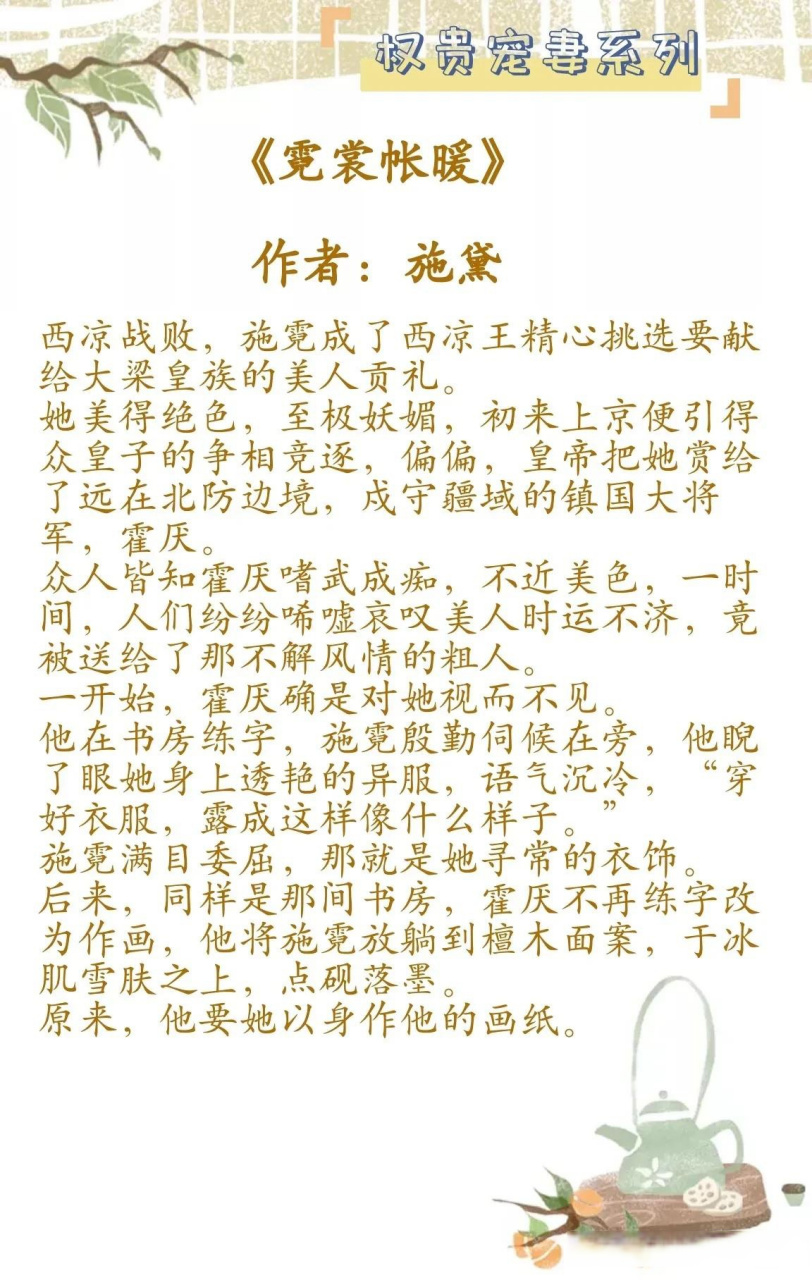 权贵宠妻系列
《霓裳帐暖》
作者：施黛
西凉战败，施霓成了西凉王精心挑选要献
给大梁皇族的美人贡礼。
她美得绝色，至极妖媚，初来上京便引得
众皇子的争相竞逐，偏偏，皇帝把她赏给
了远在北防边境，戍守疆域的镇国大将
军，霍厌。
众人皆知霍厌嗜武成痴，不近美色，一时
间，人们纷纷唏嘘哀叹美人时运不济，竟
被送给了那不解风情的粗人。
一开始，霍厌确是对她视而不见。
他在书房练字，施霓殷勤伺候在旁，他睨
了眼她身上透艳的异服，语气沉冷，“穿
好衣服，露成这样像什么样子。”
施霓满目委屈，那就是她寻常的衣饰。
后来，同样是那间书房，霍厌不再练字改
为作画，他将施霓放躺到檀木面案，于冰
肌雪肤之上，点砚落墨。
原来，他要她以身作他的画纸。